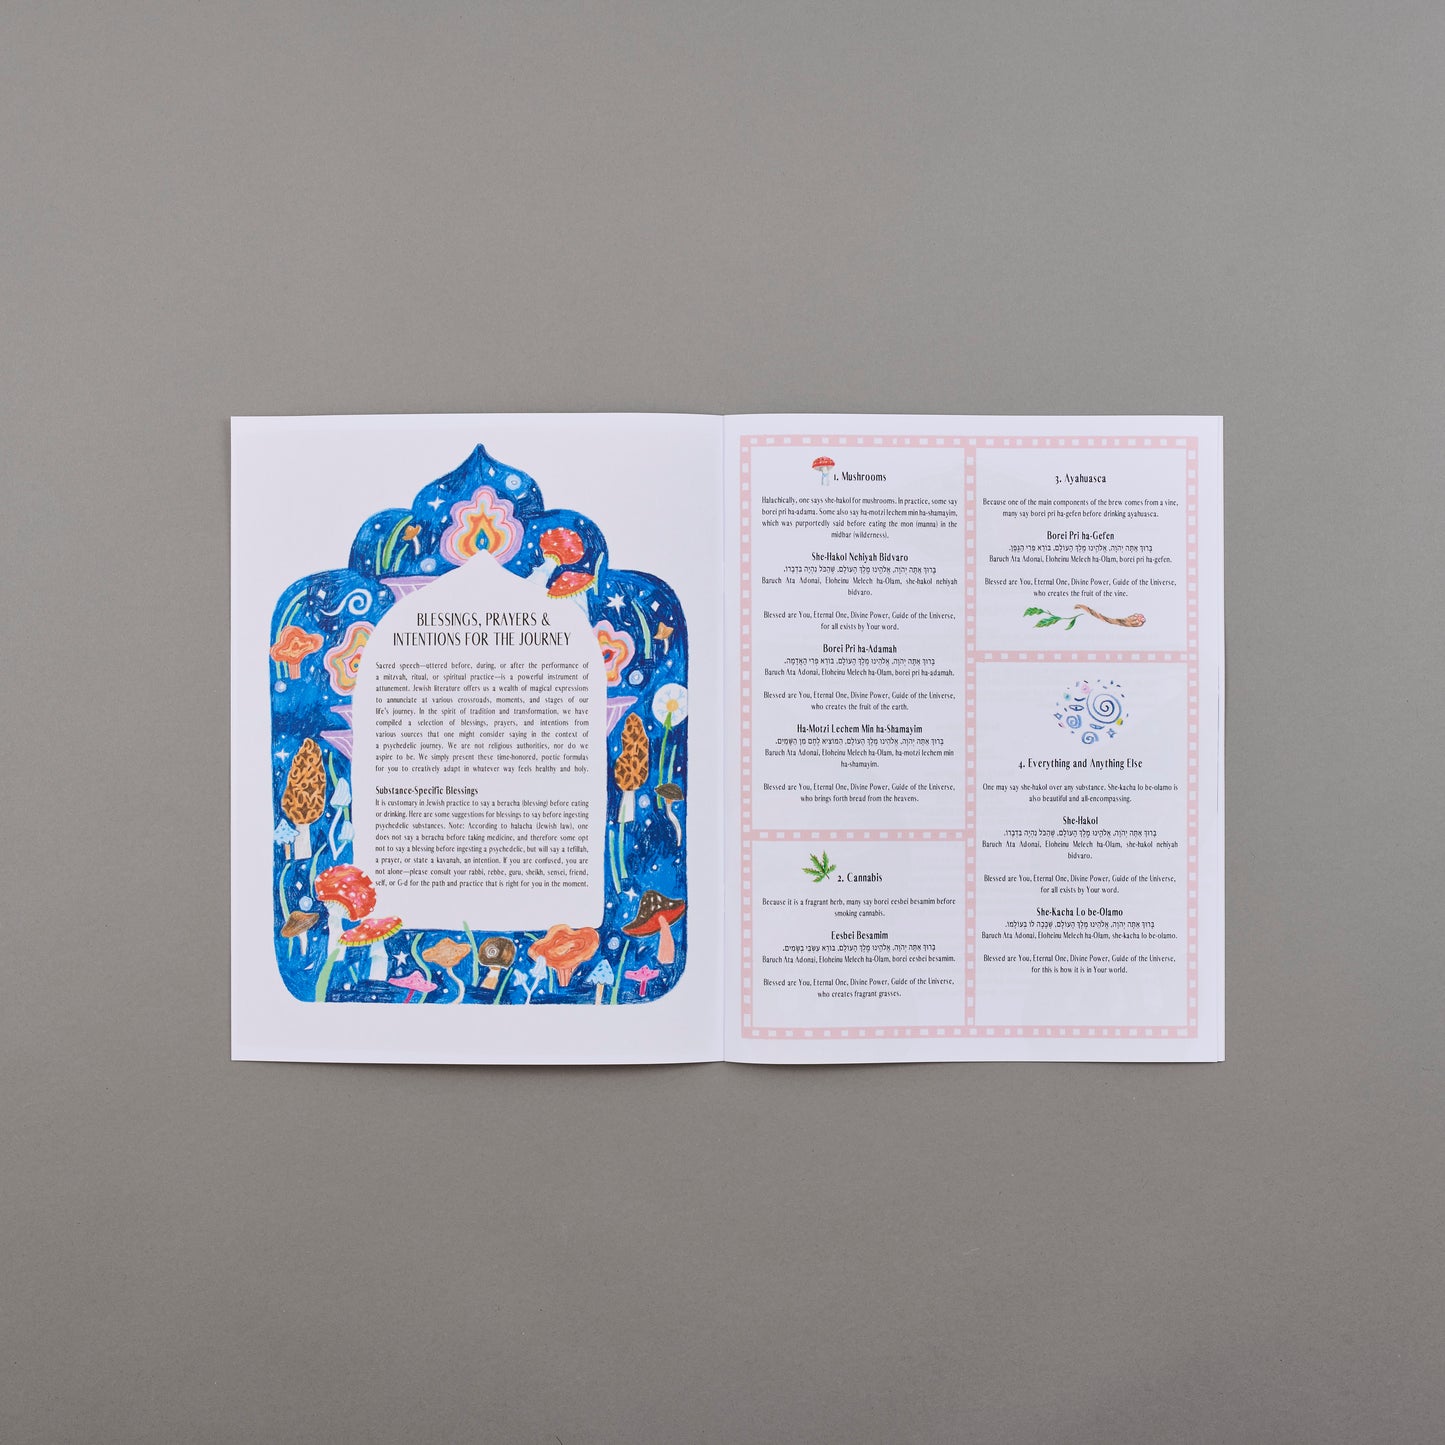 BLESSINGS, PRAYERS &
INTENTIONS FOR THE JOURNEY
Sacred speech—uttered before, during, or after the performance of
a mitzvah, ritual, or spiritual practice—is a powerful instrument of
attunement. Jewish literature offers us a wealth of magical expressions
to annunciate at various crossroads, moments, and stages of our
life's journey. In the spirit of tradition and transformation, we have
compiled a selection of blessings, prayers, and intentions from
various sources that one might consider saying in the context of
a psychedelic journey. We are not religious authorities, nor do we
aspire to be. We simply present these time-honored, poetic formulas
for you to creatively adapt in whatever way feels healthy and holy.
Substance-Specific Blessings
It is customary in Jewish practice to say a beracha (blessing) before eating
or drinking. Here are some suggestions for blessings to say before ingesting
psychedelic substances. Note: According to halacha (Jewish law), one
does not say a beracha before taking medicine, and therefore some opt
not to say a blessing before ingesting a psychedelic, but will say a tefillah,
a prayer, or state a kavanah, an intention. If you are confused, you are
not alone—please consult your rabbi, rebbe, guru, sheikh, sensei, friend,
self, or G-d for the path and practice that is right for you in the moment.
1. Mushrooms
Halachically, one says she-hakol for mushrooms. In practice, some say
borei pri ha-adama. Some also say ha-motzi lechem min ha-shamayim,
which was purportedly said before eating the mon (manna) in the
midbar (wilderness).
She-Hakol Nehiyah Bidvaro
בָּרוּךְ אַתָּה יְהֹוָה, אֱלֹהֵינוּ מֶלֶךְ הָעוֹלָם, שֶׁהַכֹּל נִהְיָה בִּדְבָרוֹ.
Baruch Ata Adonai, Eloheinu Melech ha-Olam, she-hakol nehiyah
bidvaro.
Blessed are You, Eternal One, Divine Power, Guide of the Universe,
for all exists by Your word.
Borei Pri ha-Adamah
בָּרוּךְ אַתָּה יְהֹוָה, אֱלֹהֵינוּ מֶלֶךְ הָעוֹלָם, בּוֹרֵא פְּרִי הָאֲדָמָה.
Baruch Ata Adonai, Eloheinu Melech ha-Olam, borei pri ha-adamah.
Blessed are You, Eternal One, Divine Power, Guide of the Universe,
who creates the fruit of the earth.
Ha-Motzi Lechem Min ha-Shamayim
בָּרוּךְ אַתָּה יְהֹוָה, אֱלֹהֵינוּ מֶלֶךְ הָעוֹלָם, הַמּוֹצִיא לֶחֶם מִן הַשָּׁמַיִם.
Baruch Ata Adonai, Eloheinu Melech ha-Olam, ha-motzi lechem min
ha-shamayim.
Blessed are You, Eternal One, Divine Power, Guide of the Universe,
who brings forth bread from the heavens.
2. Cannabis
Because it is a fragrant herb, many say borei eesbei besamim before
smoking cannabis.
Eesbei Besamim
בָּרוּךְ אַתָּה יְהֹוָה, אֱלֹהֵינוּ מֶלֶךְ הָעוֹלָם, בּוֹרֵא עִשְּׂבֵי בְשָׂמִים.
Baruch Ata Adonai, Eloheinu Melech ha-Olam, borei eesbei besamim.
Blessed are You, Eternal One, Divine Power, Guide of the Universe,
who creates fragrant grasses.
3. Ayahuasca
Because one of the main components of the brew comes from a vine,
many say borei pri ha-gefen before drinking ayahuasca.
Borei Pri ha-Gefen
בָּרוּךְ אַתָּה יְהֹוָה, אֱלֹהֵינוּ מֶלֶךְ הָעוֹלָם, בּוֹרֵא פְּרִי הַגָּפֶן.
Baruch Ata Adonai, Eloheinu Melech ha-Olam, borei pri ha-gefen.
Blessed are You, Eternal One, Divine Power, Guide of the Universe,
who creates the fruit of the vine.
4. Everything and Anything Else
One may say she-hakol over any substance. She-kacha lo be-olamo is
also beautiful and all-encompassing.
She-Hakol
בָּרוּךְ אַתָּה יְהֹוָה, אֱלֹהֵינוּ מֶלֶךְ הָעוֹלָם, שֶׁהַכֹּל נִהְיָה בִּדְבָרוֹ.
Baruch Ata Adonai, Eloheinu Melech ha-Olam, she-hakol nehiyah
bidvaro.
Blessed are You, Eternal One, Divine Power, Guide of the Universe,
for all exists by Your word.
She-Kacha Lo be-Olamo
בָּרוּךְ אַתָּה יְהֹוָה, אֱלֹהֵינוּ מֶלֶךְ הָעוֹלָם, שֶׁכָּכָה לוֹ בְּעוֹלָמוֹ.
Baruch Ata Adonai, Eloheinu Melech ha-Olam, she-kacha lo be-olamo.
Blessed are You, Eternal One, Divine Power, Guide of the Universe,
for this is how it is in Your world.